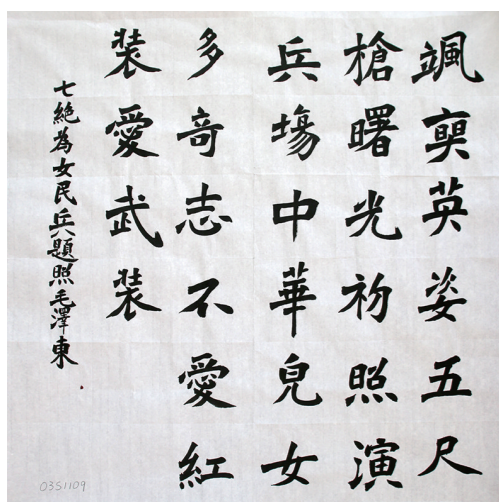 颯爽英姿五尺
槍曙光初照演
兵場中華兒女
多奇志不愛紅
裝愛武裝
七絕為女民兵題照毛澤東
03S1109